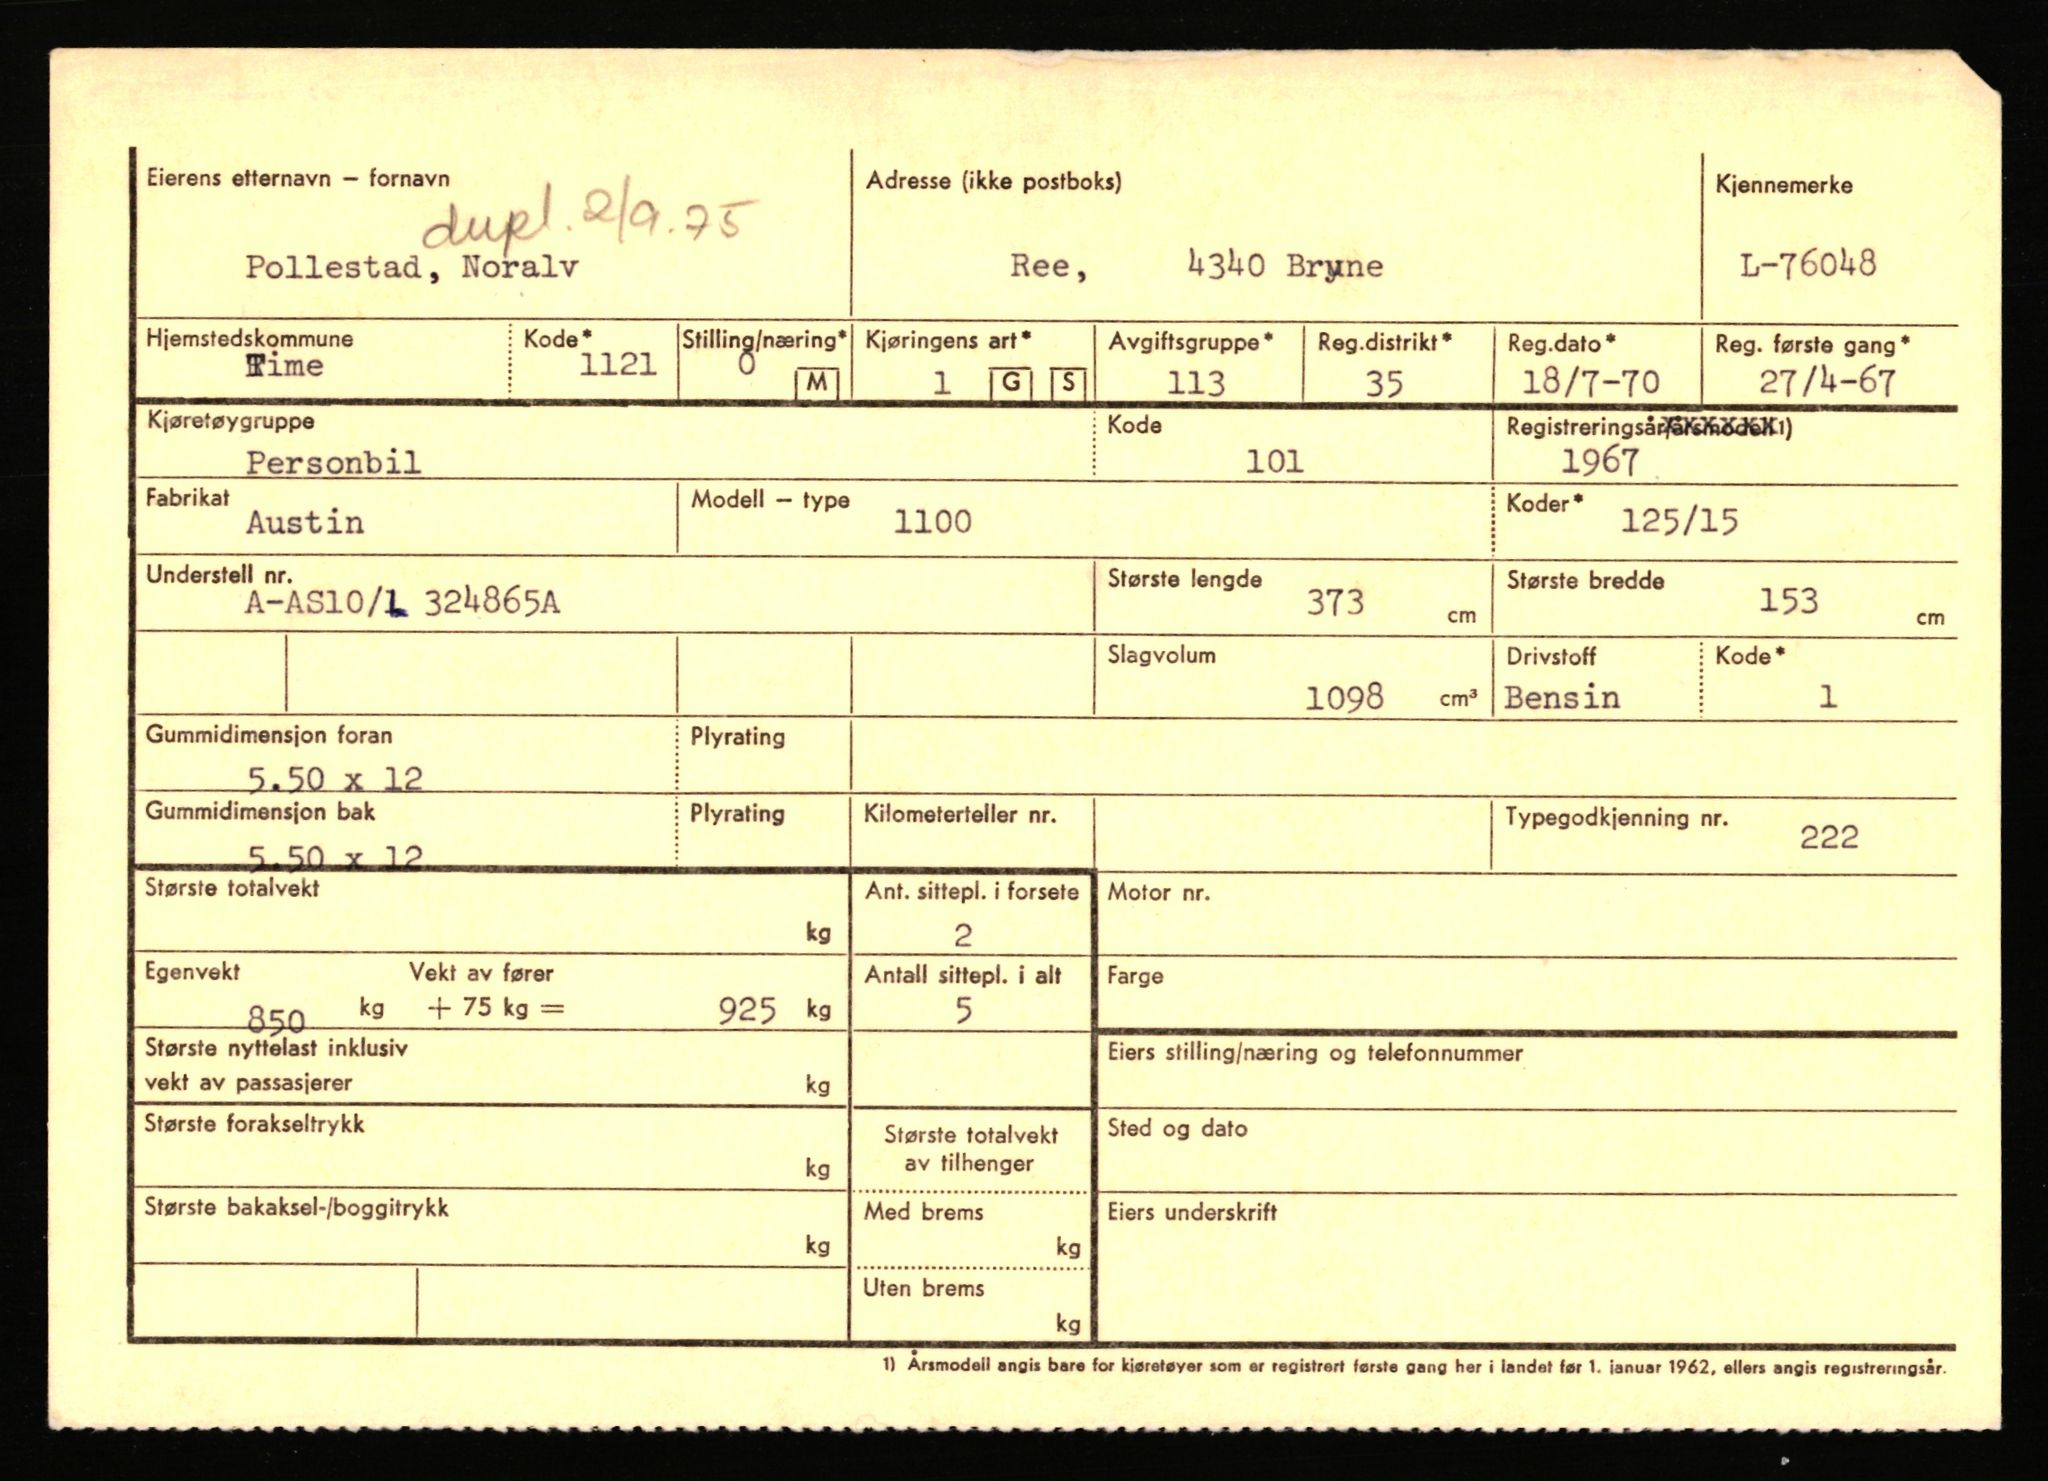 Eierens etternavn – fornavn
Adresse (ikke postboks)
Kjennemerke
dupl. 2/9.75
Pollestad, Noralv
Ree, 4340 Bryne
L-76048
Hjemstedskommune
Kode*
Stilling/næring*
Kjøringens art*
Avgiftsgruppe*
Reg.distrikt*
Reg.dato*
Reg. første gang*
Time
1121
0
M
1
G
S
113
35
18/7-70
27/4-67
Kjøretøygruppe
Kode
Registreringsår/årsmodell 1)
Personbil
101
1967
Fabrikat
Modell – type
Koder*
Austin
1100
125/15
Understell nr.
Største lengde
Største bredde
A-AS10/L 324865A
373 cm
153 cm
Slagvolum
Drivstoff
Kode*
1098 cm³
Bensin
1
Gummidimensjon foran
Plyrating
5.50 x 12
Gummidimensjon bak
Plyrating
Kilometerteller nr.
Typegodkjenning nr.
5.50 x 12
222
Største totalvekt
Ant. sittepl. i forsete
Motor nr.
kg
2
Egenvekt
Vekt av fører
Antall sittepl. i alt
Farge
850 kg + 75 kg = 925 kg
5
Største nyttelast inklusiv
Eiers stilling/næring og telefonnummer
vekt av passasjerer kg
Største forakseltrykk
Største totalvekt
Sted og dato
av tilhenger
kg
Største bakaksel-/boggitrykk
Med brems
Eiers underskrift
kg
kg
Uten brems
kg
1) Årsmodell angis bare for kjøretøyer som er registrert første gang her i landet før 1. januar 1962, ellers angis registreringsår.